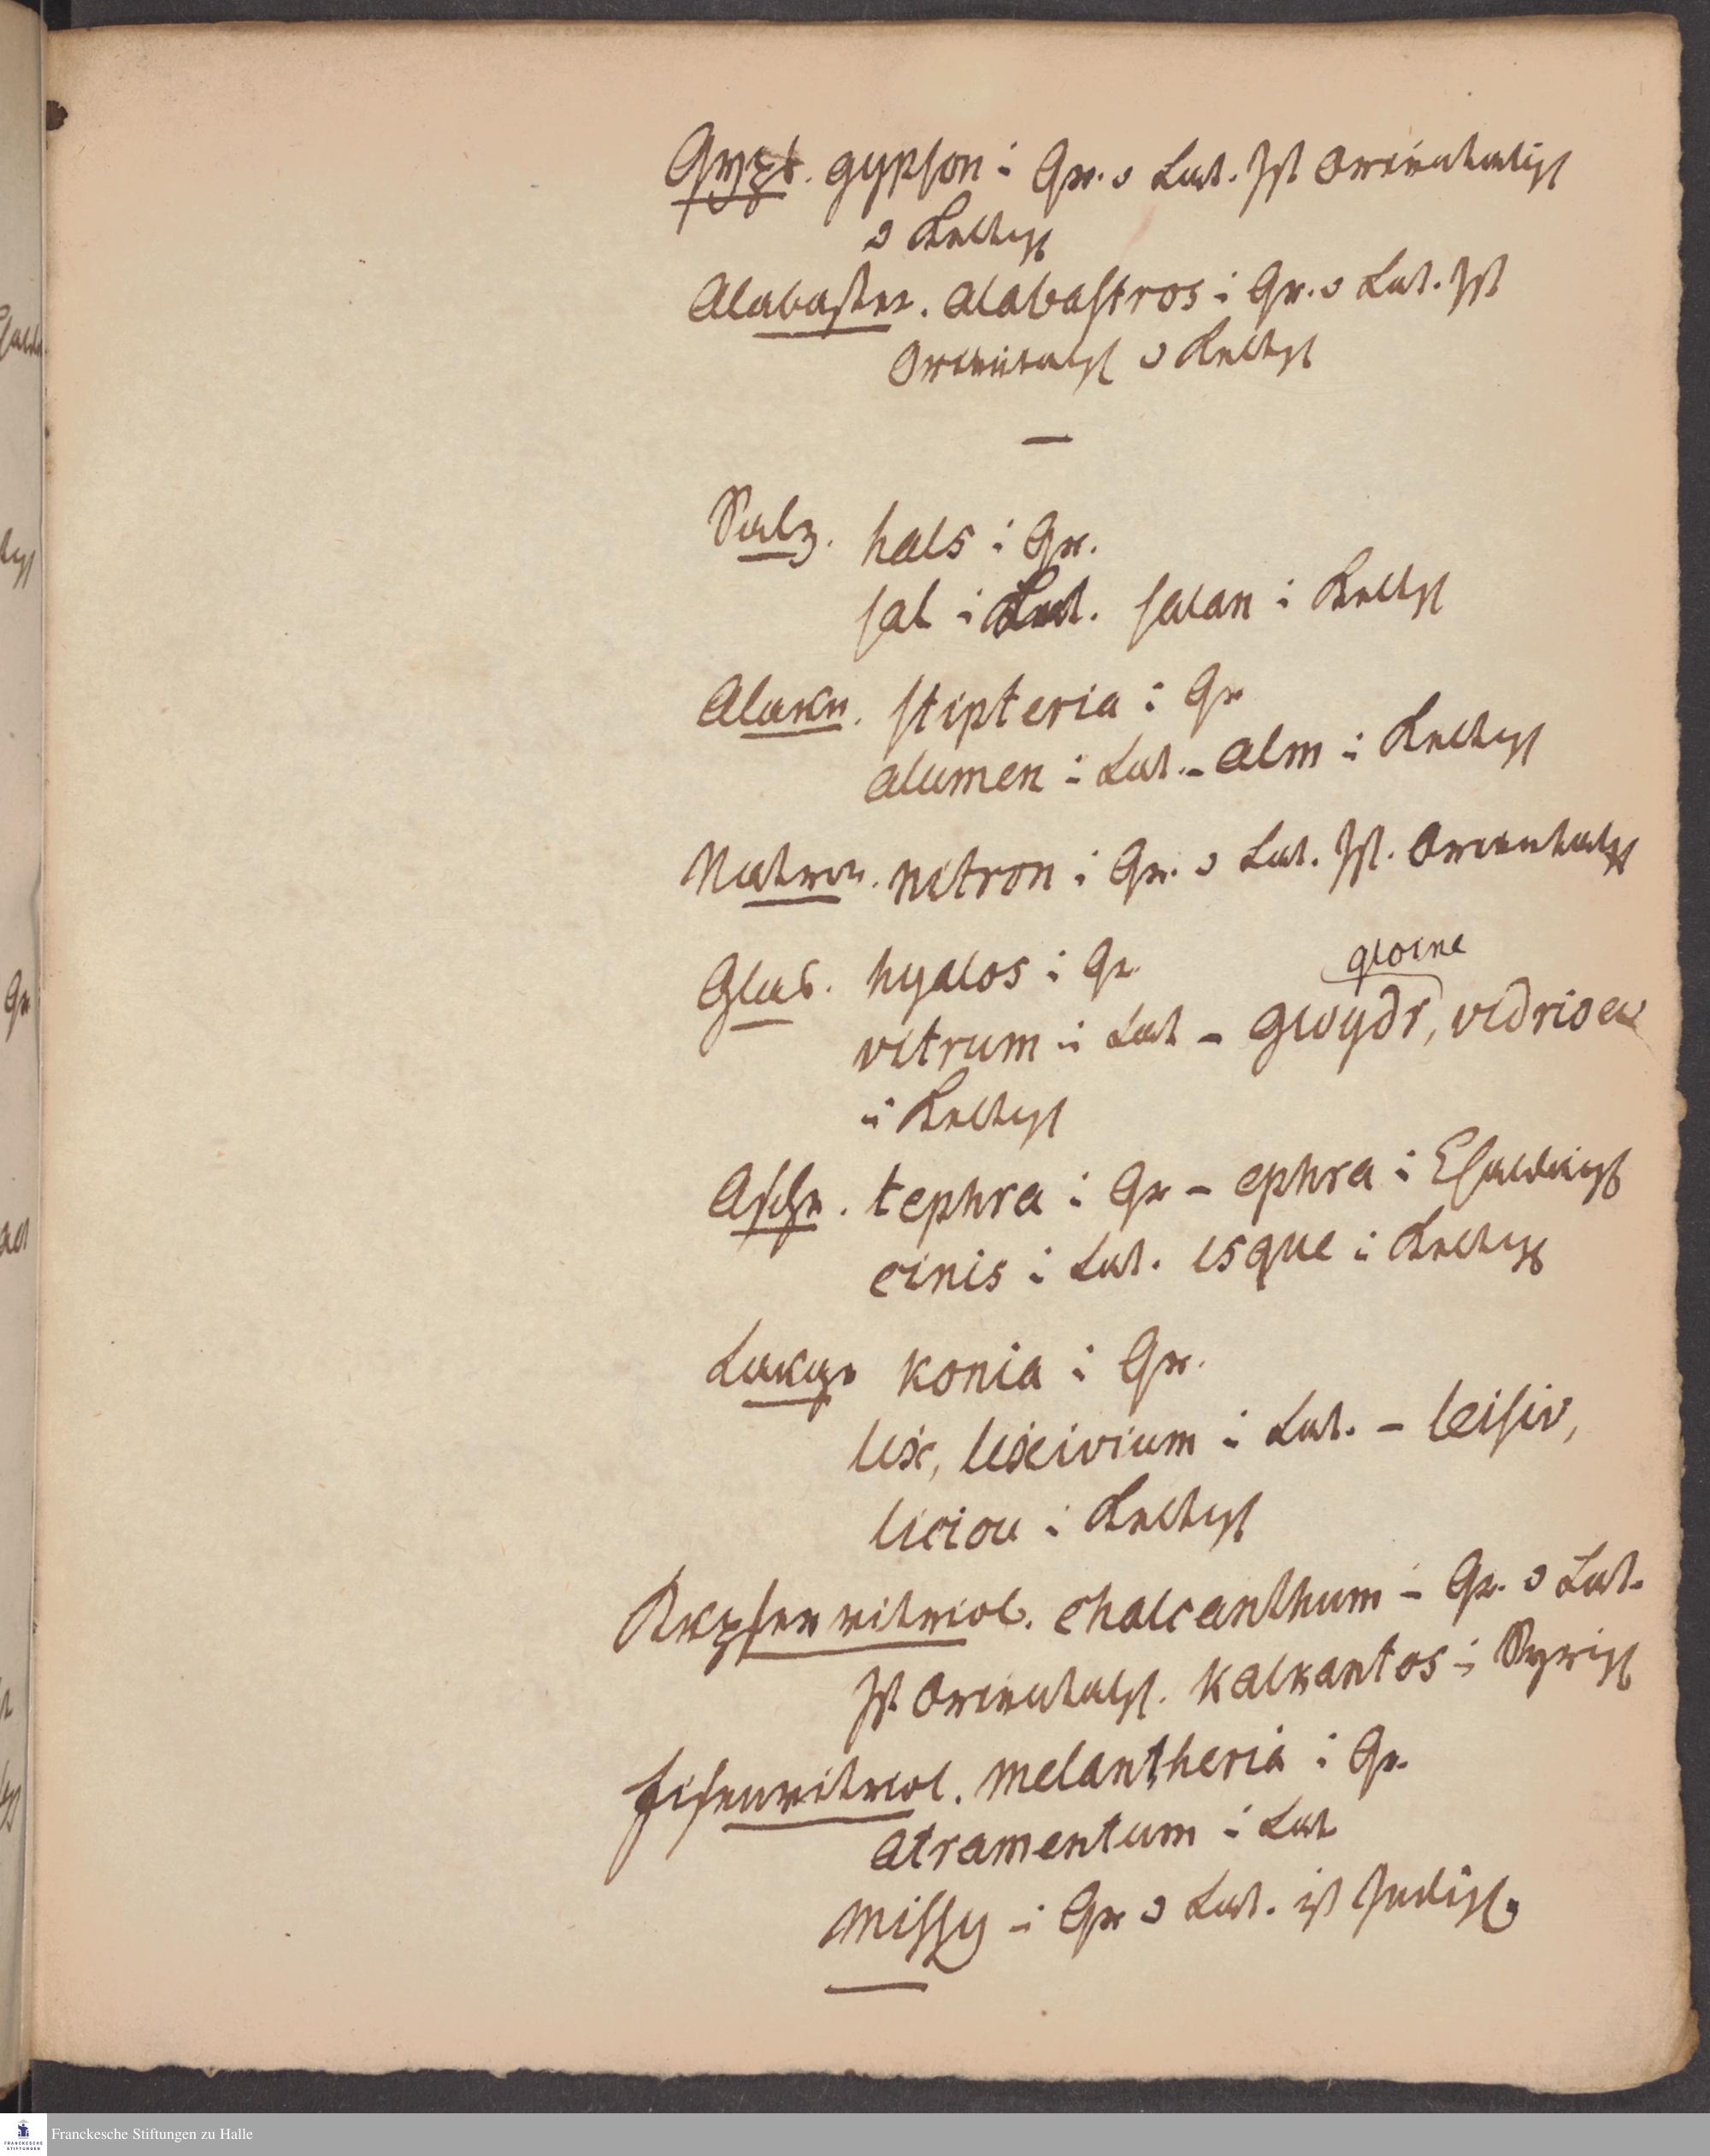 Gyps. gypson i Gr. u Lat. Ist Orientalisch
u Keltisch
Alabaster. alabastros i Gr. u Lat. Ist
Orientalisch u Keltisch
—
Salz. hals i Gr.
sal i Lat. salan i Keltisch
Alaun. stipteria i Gr
alumen i Lat. – alm i Keltisch
Natron. nitron i Gr. u Lat. Ist. Orientalisch
gloine
Glas. hyalos i Gr.
vitrum i Lat – gwydr, vidrioew
i Keltisch
Asche. tephra i Gr – ephra i Chaldäisch
cinis i Lat. isque i Keltisch
Lauge konia i Gr.
lix, lixivium i Lat. – leisiv,
liciou i Keltisch
Kupfervitriol. chalcanthum i Gr. u Lat.
Ist Orientalisch. kalkantos i Syrisch
Eisenvitriol. melantheria i Gr.
atramentum i Lat
missy i Gr u Lat. ist Indisch.
Franckesche Stiftungen zu Halle